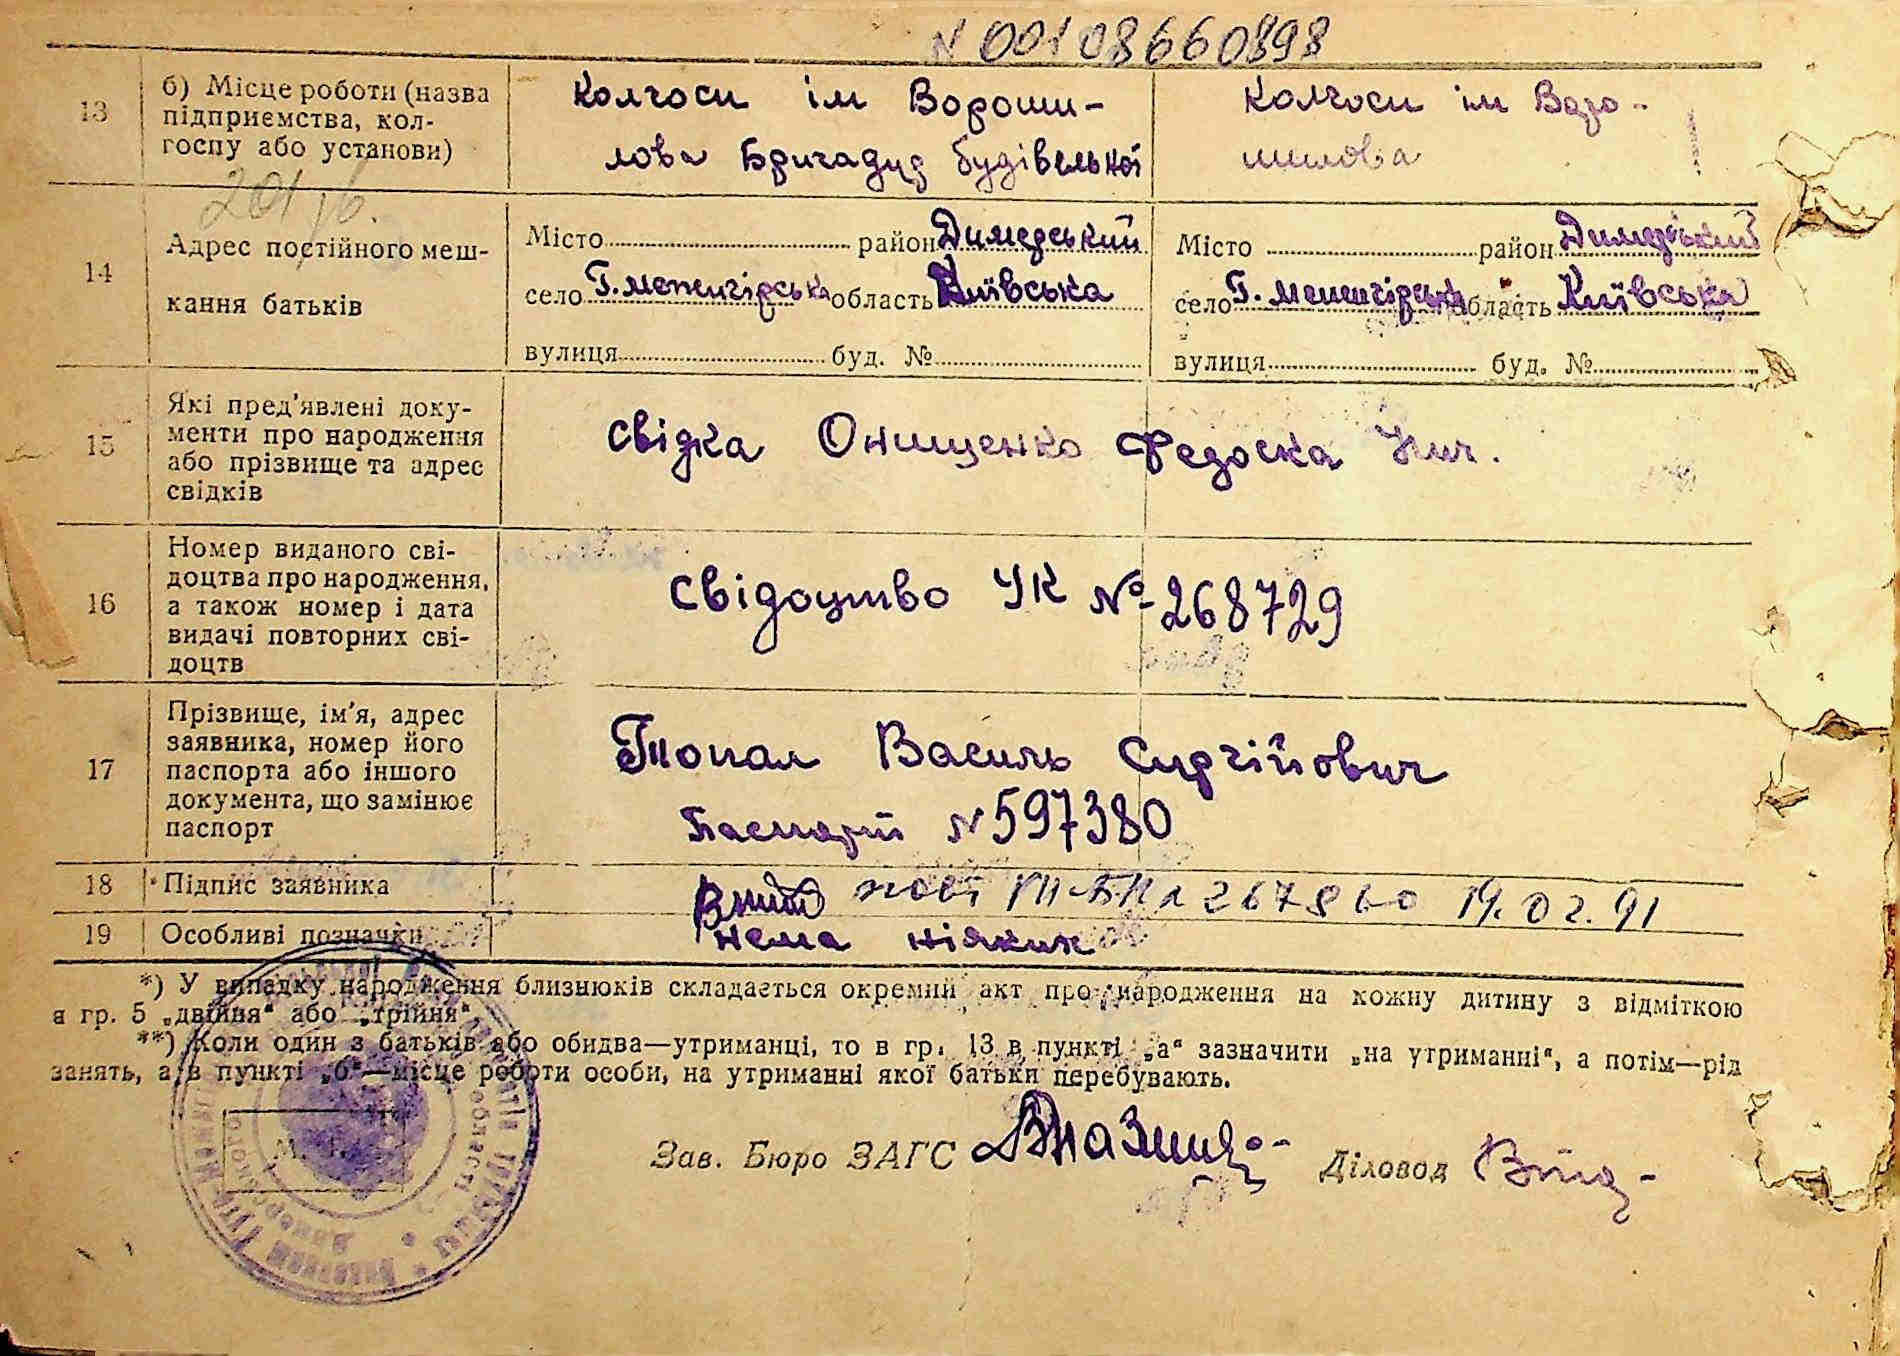 N 00108660898
13 б) Місце роботи (назва підприємства, колгоспу або установи)
Колгосп ім Вороши-
лова Бригадир будівельної
Колгосп ім Воро-
шилова
201/б.
14 Адрес постійного меш-
кання батьків
Місто район Димерський
село Г. Межигірська область Київська
вулиця буд. №
Місто район Димерський
село Г. Межигірська область Київська
вулиця буд. №
15 Які пред'явлені доку-
менти про народження
або прізвище та адрес
свідків
Свідка Онищенко Федоска
16 Номер виданого сві-
доцтва про народження,
а також номер і дата
видачі повторних сві-
доцтв
Свідоцтво УК № 268729
17 Прізвище, ім'я, адрес
заявника, номер його
паспорта або іншого
документа, що замінює
паспорт
Топал Василь Сергійович
Паспорт N 597380
18 Підпис заявника
19.02.91
19 Особливі позначки
нема ніяких
*) У випадку народження близнюків складається окремий акт про народження на кожну дитину з відміткою
в гр. 5 „двійня“ або „трійня“.
**) Коли один з батьків або обидва—утриманці, то в гр. 13 в пункті „а“ зазначити „на утриманні“, а потім—рід
занять, а в пункті „б“—місце роботи особи, на утриманні якої батьки перебувають.
М.
Зав. Бюро ЗАГС
Діловод